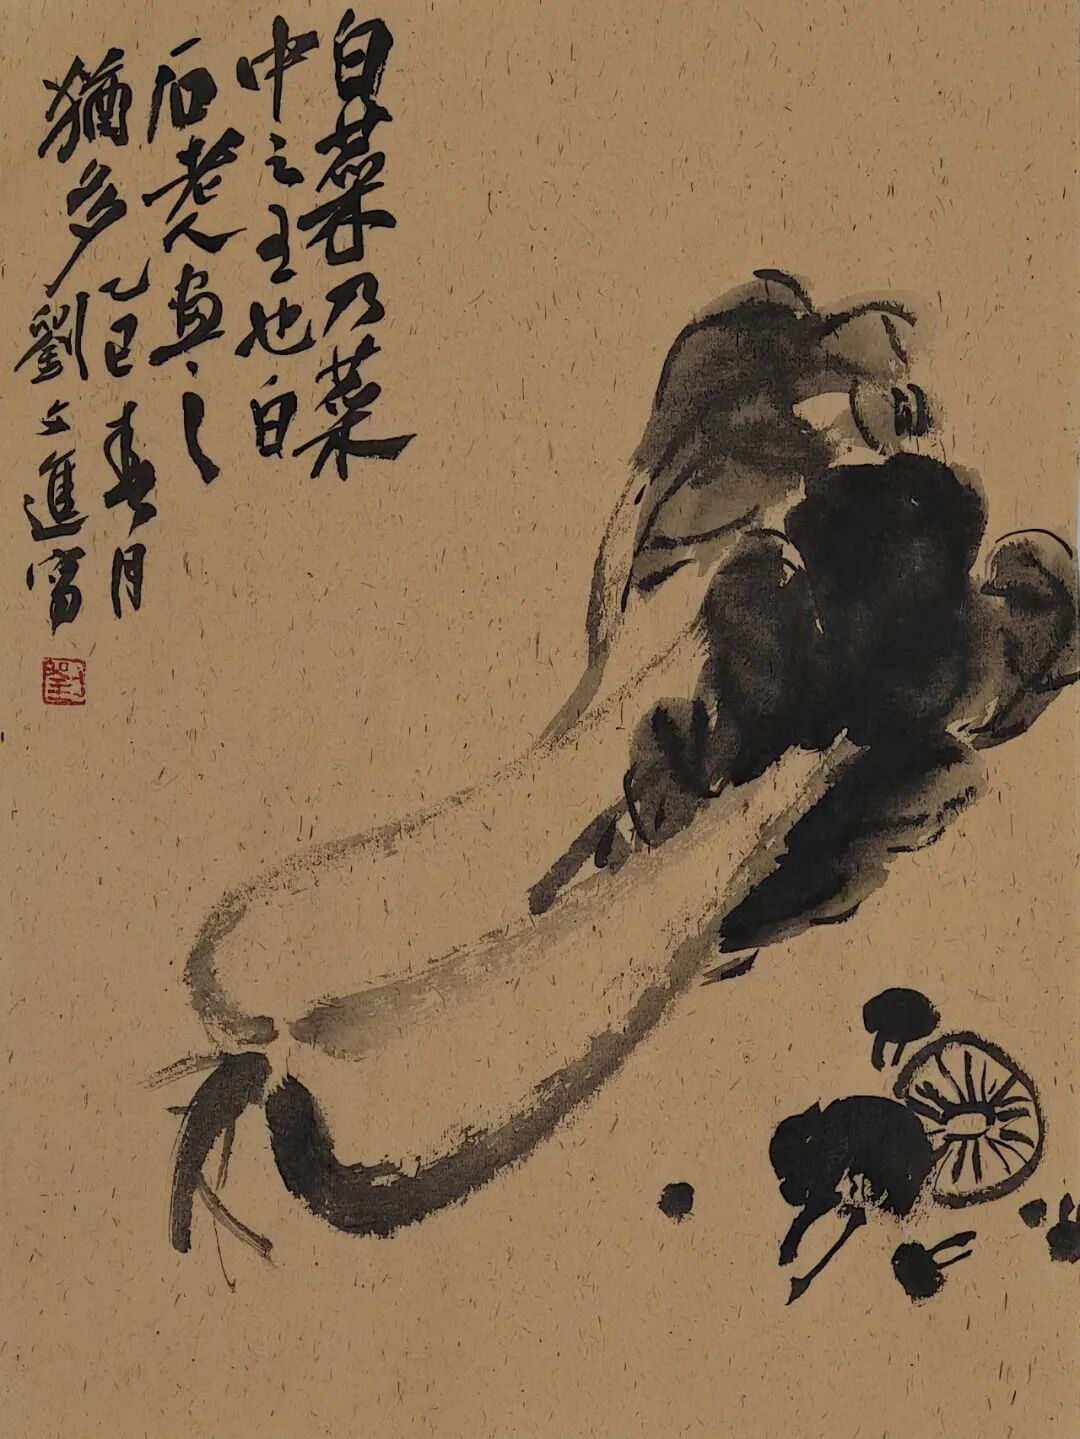 白菜乃菜
中之王也白
石老人画之
猶多
乙巳春月
劉文進寫